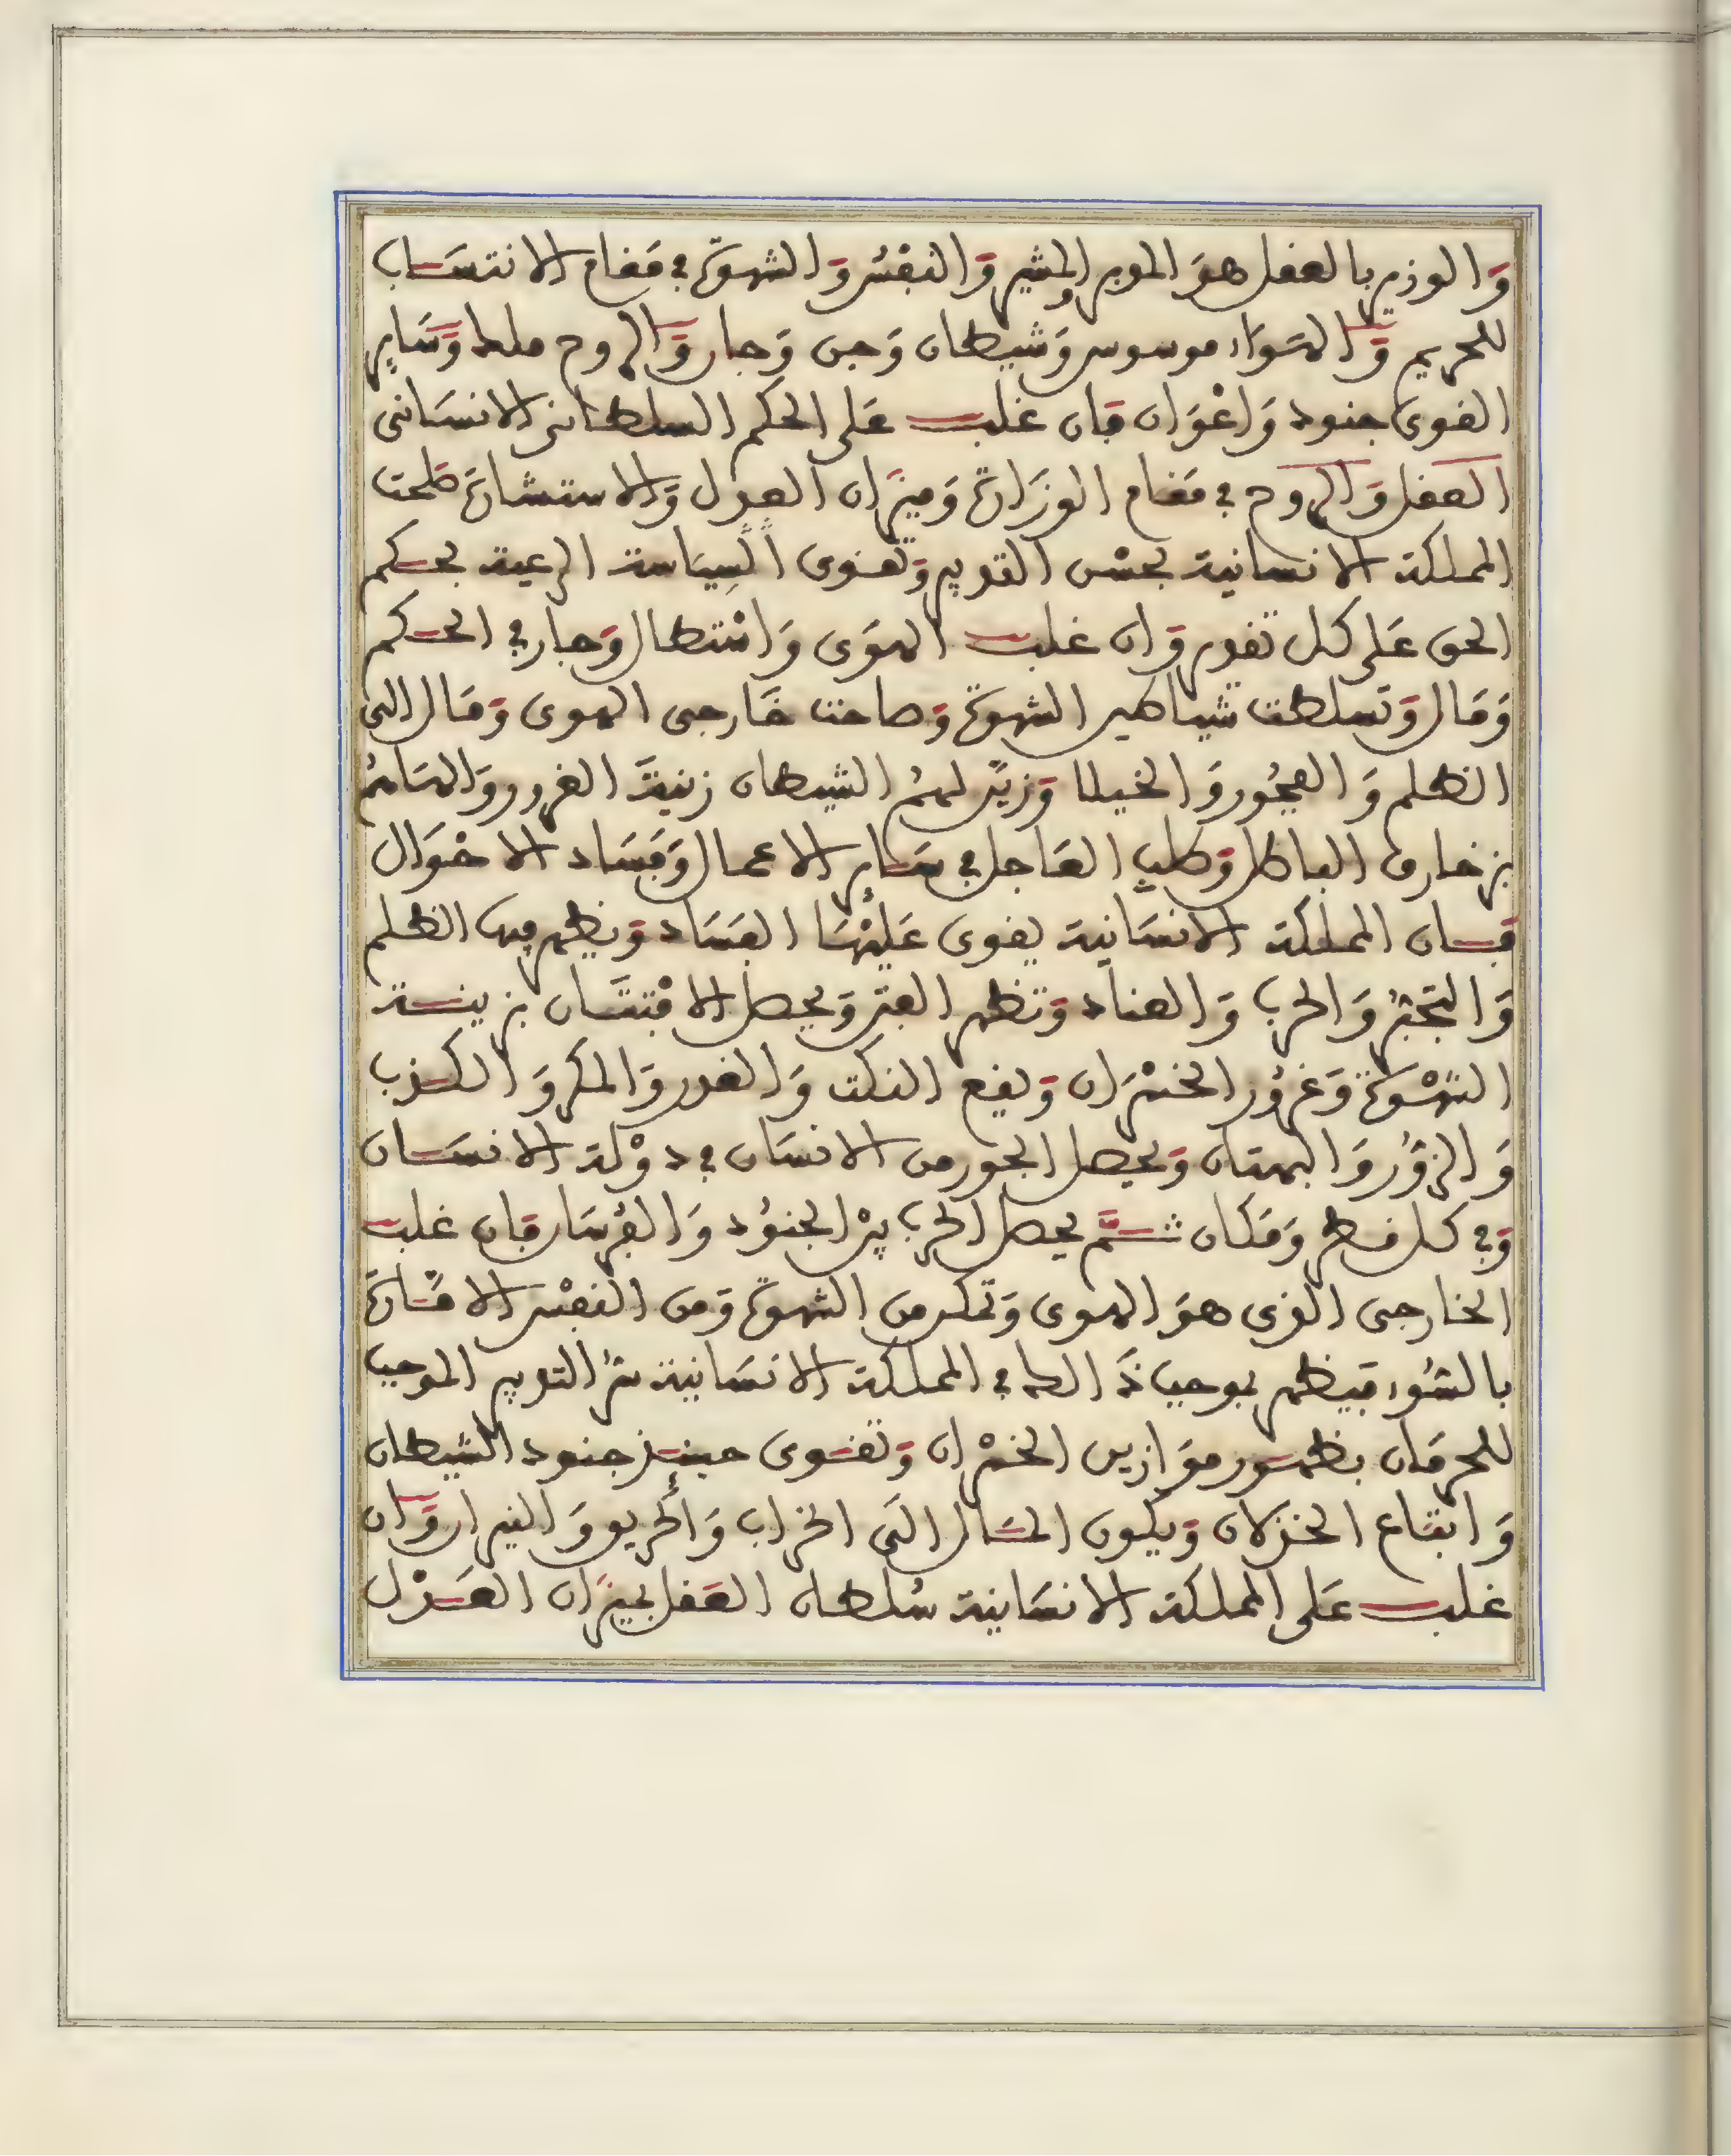 وَالوزير بالعقل هوَ المدبر المشير وَالنفْس وَالشهوَة في مَقام الانتسَاب
للحريم وَالهَوَاء موسوس وَشيطان وَجن وَجار وَالروح ملك وَسَاير
القوى جنود وَاعْوَان فان غلب عَلى الحكم السلطاني الانسَاني
العقل وَالروح في مَقام الوزَرَاة وَميزَان العدل وَالاستشارة صلحت
المملكة الانسانية بحسْن التدبير وَتقوى السِيَاسة الرعية بحكم
الحق عَلى كل تقدير وَان غلب الهوَى وَاسْتطال وَجار في الحكم
وَمَال وَتسلطت شياطين الشهوَة وَصاحت خَارجى الهوى وَمَال الى
الظلم وَالفجُور وَالخيلا وَزيَّن لهمُ الشيطان زينةَ الغرور وَالهَامُم
بزخارف الباطل وَطلب العَاجل في سَاير الاعمال وَفسَاد الاحْوَال
فان المملكة الانسَانية يقوى عَليْهَا الفسَاد وَيظهر فيها الظلم
وَالتجبُّر وَالحرب وَالعناد وَتظهر الفتن وَيحصل الافْتتَان بزينة
الشهْوَة وَغرُور الخسْرَان وَيقع النكث وَالغدر وَالمكر وَالكذب
وَالزوُر وَالبهتان وَيحصل الجور من الانسَان في دوْلة الانسَان
وَفي كل قطر وَمَكان ثمَّ يحصل الحرب بيْن الجنوُد وَالفرْسَان فان غلب
الخارجى الذى هوَ الهوى وَتمكن من الشهوَة وَمن النفْس الامَّارة
بالسُّوء فيظهر بموجب ذَالك في المملكة الانسَانية سُّر التدبير الموجب
للحرمَان بظهور موَازين الخسْران وَتقوى حينئذ جنود الشيطان
وَاتبَاع الخذلان وَيكون المَثال الىَ الخراب وَالحريق وَالنيران وَان
غلب عَلى المملكة الانسَانية سُلطان العَقل بميزَان العَدْل